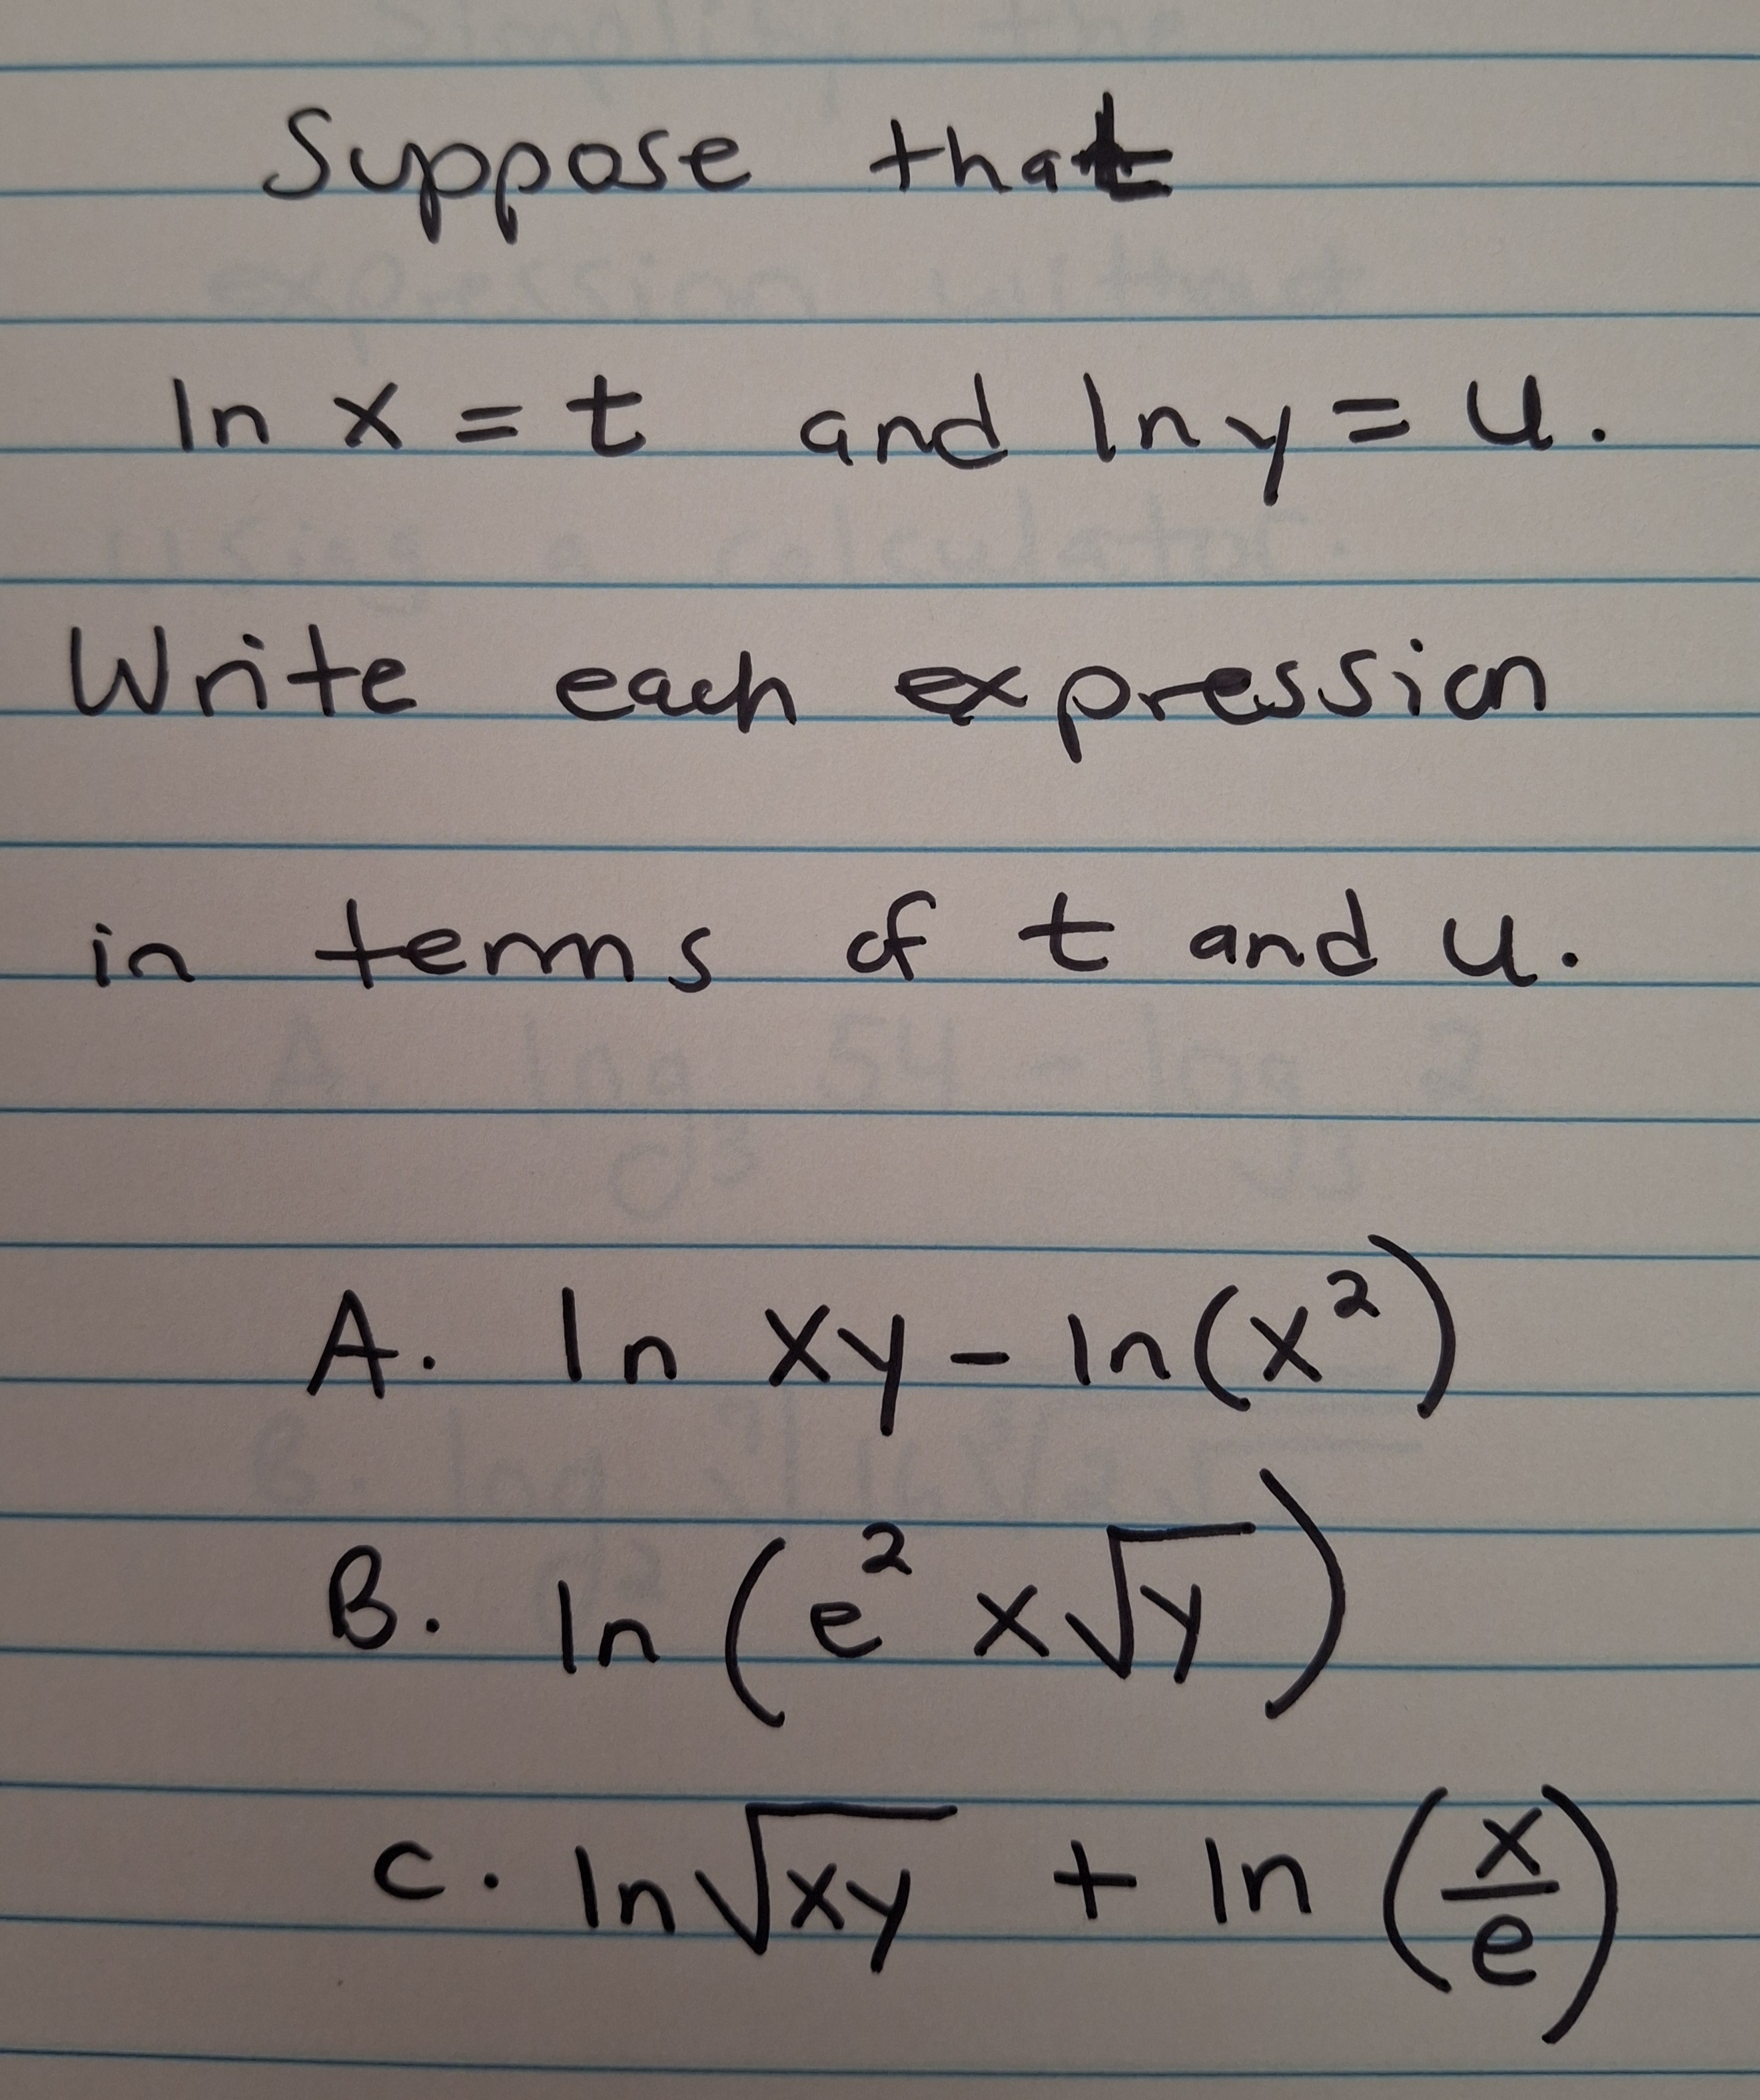 Suppose that
ln x = t and ln y = u.
Write each expression
in terms of t and u.
A. ln xy - ln(x²)
B. ln(e² x√y)
C. ln√xy + ln (x/e)